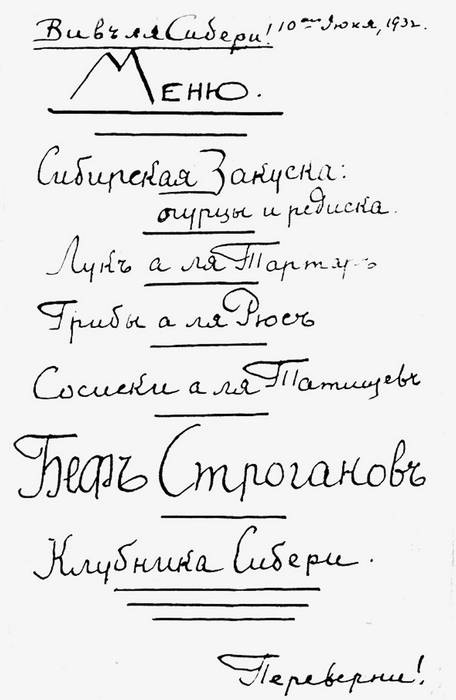 Вивъ ля Сибери! 10го Июня, 1932.
Меню.
Сибирская Закуска:
огурцы и редиска.
Лукъ а ля Тартаръ
Грибы а ля Рюсъ
Сосиски а ля Татищевъ
Бефъ Строгановъ
Клубника Сибери.
Переверни!